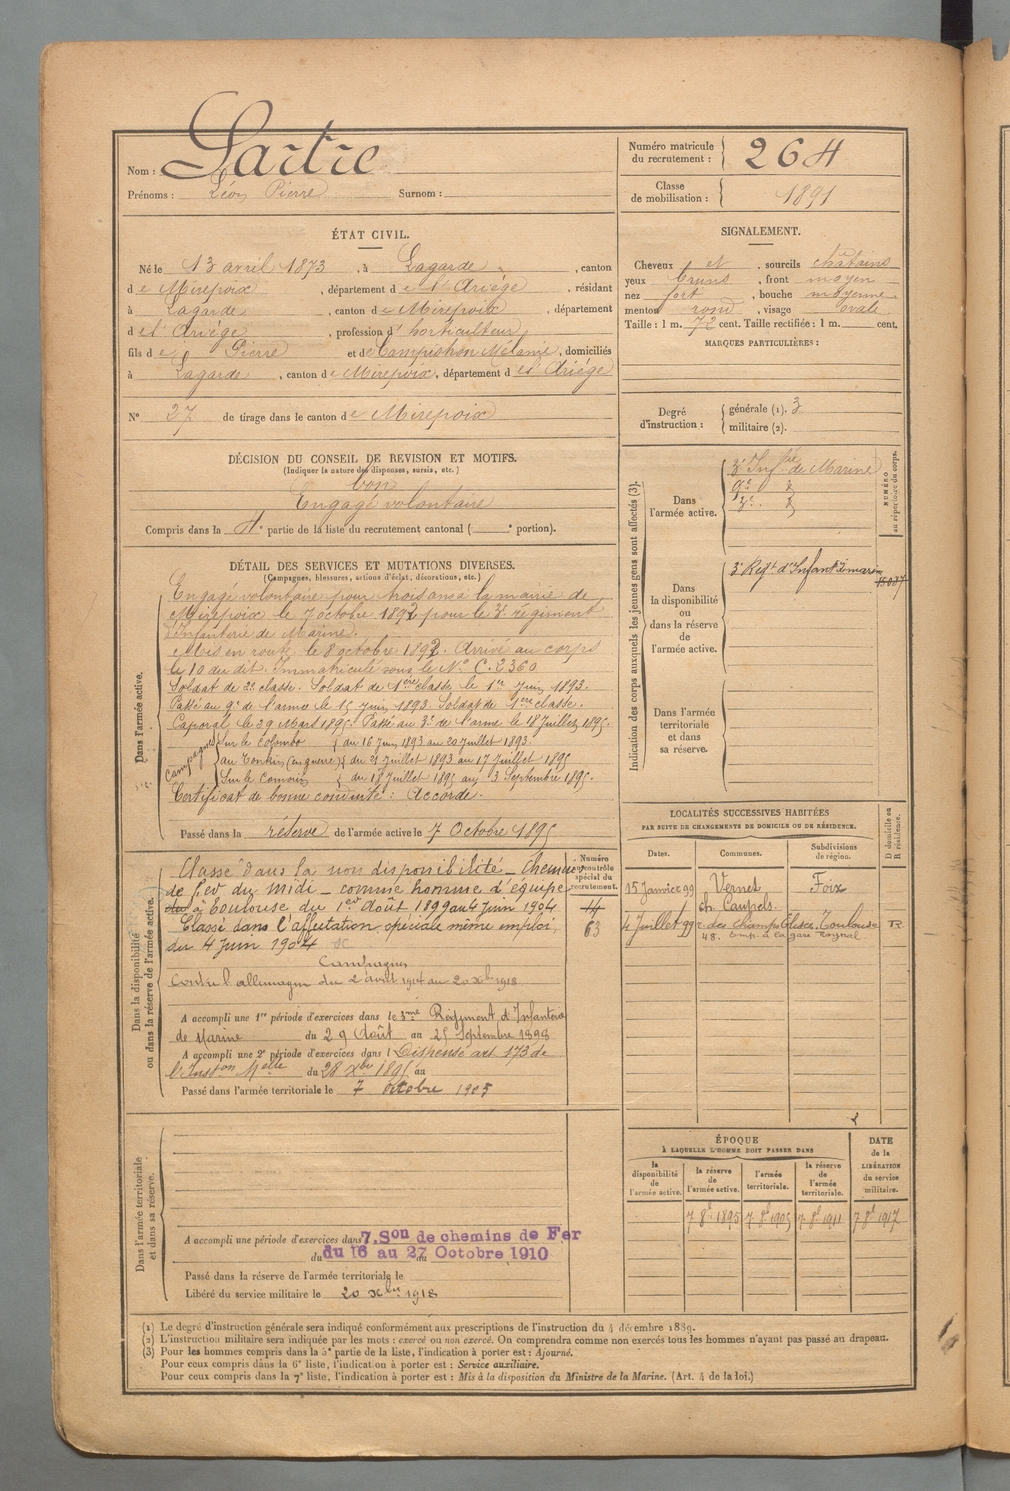 Nom : Lartre
Prénoms : Léon Pierre Surnom :
Numéro matricule du recrutement : 264
Classe de mobilisation : 1891
ÉTAT CIVIL.
Né le 13 avril 1873, à Lagarde, canton
de Mirepoix, département de l'Ariège, résidant
à Lagarde, canton de Mirepoix, département
de l'Ariège, profession d'horticulteur
fils de Pierre et de Campistron Mélanie, domiciliés
à Lagarde, canton de Mirepoix, département de l'Ariége
N° 27 de tirage dans le canton de Mirepoix
SIGNALEMENT.
Cheveux et , sourcils châtains
yeux bruns , front moyen
nez fort , bouche moyenne
menton rond , visage ovale
Taille : 1 m. 72 cent. Taille rectifiée : 1 m. cent.
MARQUES PARTICULIÈRES :
Degré d'instruction : générale (1). 3
militaire (2).
DÉCISION DU CONSEIL DE REVISION ET MOTIFS.
(Indiquer la nature des dispenses, sursis, etc.)
bon
Engagé volontaire
Compris dans la 4e partie de la liste du recrutement cantonal ( e portion).
DÉTAIL DES SERVICES ET MUTATIONS DIVERSES.
(Campagnes, blessures, actions d'éclat, décorations, etc.)
Dans l'armée active.
Engagé volontaire pour trois ans à la mairie de
Mirepoix le 7 octobre 1892 pour le 3e régiment
d'Infanterie de Marine.
Mis en route le 8 octobre 1892. Arrivé au corps
le 10 du dit. Immatriculé sous le N° C. 2360
Soldat de 2e classe. Soldat de 1ère classe le 1er Juin 1893.
Passé au 9e de l'arme le 15 Juin 1893. Soldat de 1ère classe.
Caporal le 29 Mars 1895. Passé au 3e de l'arme le 18 Juillet 1895.
Campagnes
Sur le Colombo du 16 Juin 1893 au 20 Juillet 1893
au Tonkin (en guerre) du 21 Juillet 1893 au 17 Juillet 1895
Sur le Comorin du 18 Juillet 1895 au 3 Septembre 1895.
Certificat de bonne conduite : Accordé.
Passé dans la réserve de l'armée active le 7 Octobre 1895
Indication des corps auxquels les jeunes gens sont affectés (3).
NUMÉRO au répertoire du corps.
Dans l'armée active.
3e Inf rie de Marine
9e
3e
Dans la disponibilité ou dans la réserve de l'armée active.
3e Regt d'Infant
Dans l'armée territoriale et dans sa réserve.
Dans la disponibilité ou dans la réserve de l'armée active.
Numéro au contrôle spécial du recrutement.
Classé dans la non disponibilité – Chemins
de fer du Midi – comme homme d'équipe
à Toulouse du 1er Août 1899 au 4 Juin 1904
Classé dans l'affectation spéciale même emploi,
du 4 Juin 1904
14
63
Campagnes
Contre l'allemagne du 2 août 1914 au 20 Xbre 1918
A accompli une 1re période d'exercices dans le 3ème Régiment d'Infanterie
de Marine du 29 Août au 25 Septembre 1898
A accompli une 2e période d'exercices dans l Dispense art 173 de
l'Inston Mlle du 28 Xbre 1895 au
Passé dans l'armée territoriale le 7 octobre 1905
LOCALITÉS SUCCESSIVES HABITÉES
PAR SUITE DE CHANGEMENTS DE DOMICILE OU DE RÉSIDENCE.
D domicile ou R résidence.
Dates. Communes. Subdivisions de région.
15 Janvier 99 Vernet Foix
ch. Caupels.
4 Juillet 99 r. des Champs Elisées. Toulouse R
48. Emp. à la gare
Dans l'armée territoriale et dans sa réserve.
A accompli une période d'exercices dans 7. Son de chemins de Fer
du 16 au 27 Octobre 1910
Passé dans la réserve de l'armée territoriale le
Libéré du service militaire le 20 Xbre 1918
ÉPOQUE
À LAQUELLE L'HOMME DOIT PASSER DANS
la disponibilité de l'armée active.
la réserve de l'armée active.
l'armée territoriale.
la réserve de l'armée territoriale.
DATE de la LIBÉRATION du service militaire.
7 8e 1895 7 8e 1905 7 8e 1911 7 8e 1917
(1) Le degré d'instruction générale sera indiqué conformément aux prescriptions de l'instruction du 4 décembre 1889.
(2) L'instruction militaire sera indiquée par les mots : exercé ou non exercé. On comprendra comme non exercés tous les hommes n'ayant pas passé au drapeau.
(3) Pour les hommes compris dans la 5e partie de la liste, l'indication à porter est : Ajourné.
Pour ceux compris dans la 6e liste, l'indication à porter est : Service auxiliaire.
Pour ceux compris dans la 7e liste, l'indication à porter est : Mis à la disposition du Ministre de la Marine. (Art. 4 de la loi.)